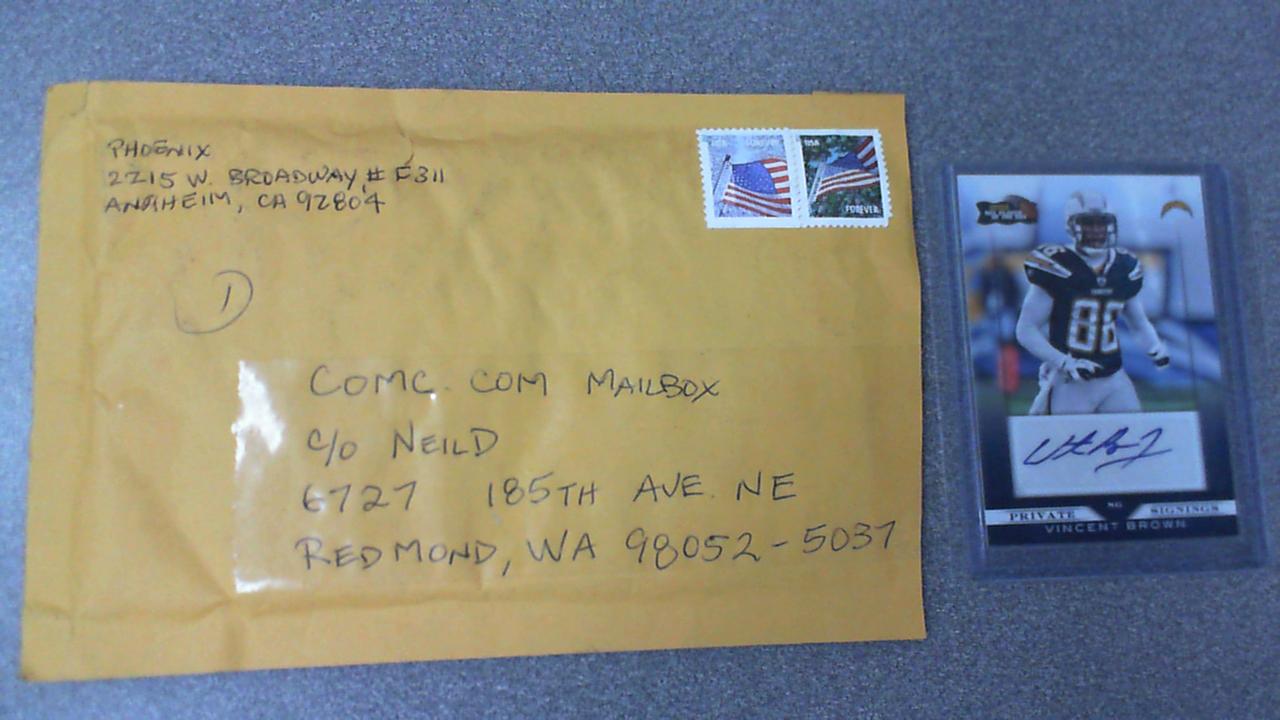 PHOENIX
2215 W. BROADWAY, # E311
ANAHEIM, CA 92804
USA FOREVER
USA
FOREVER
1
COMC. COM MAILBOX
c/o NEILD
6727 185TH AVE. NE
REDMOND, WA 98052-5037
86
88
PRIVATE SIGNINGS
VINCENT BROWN